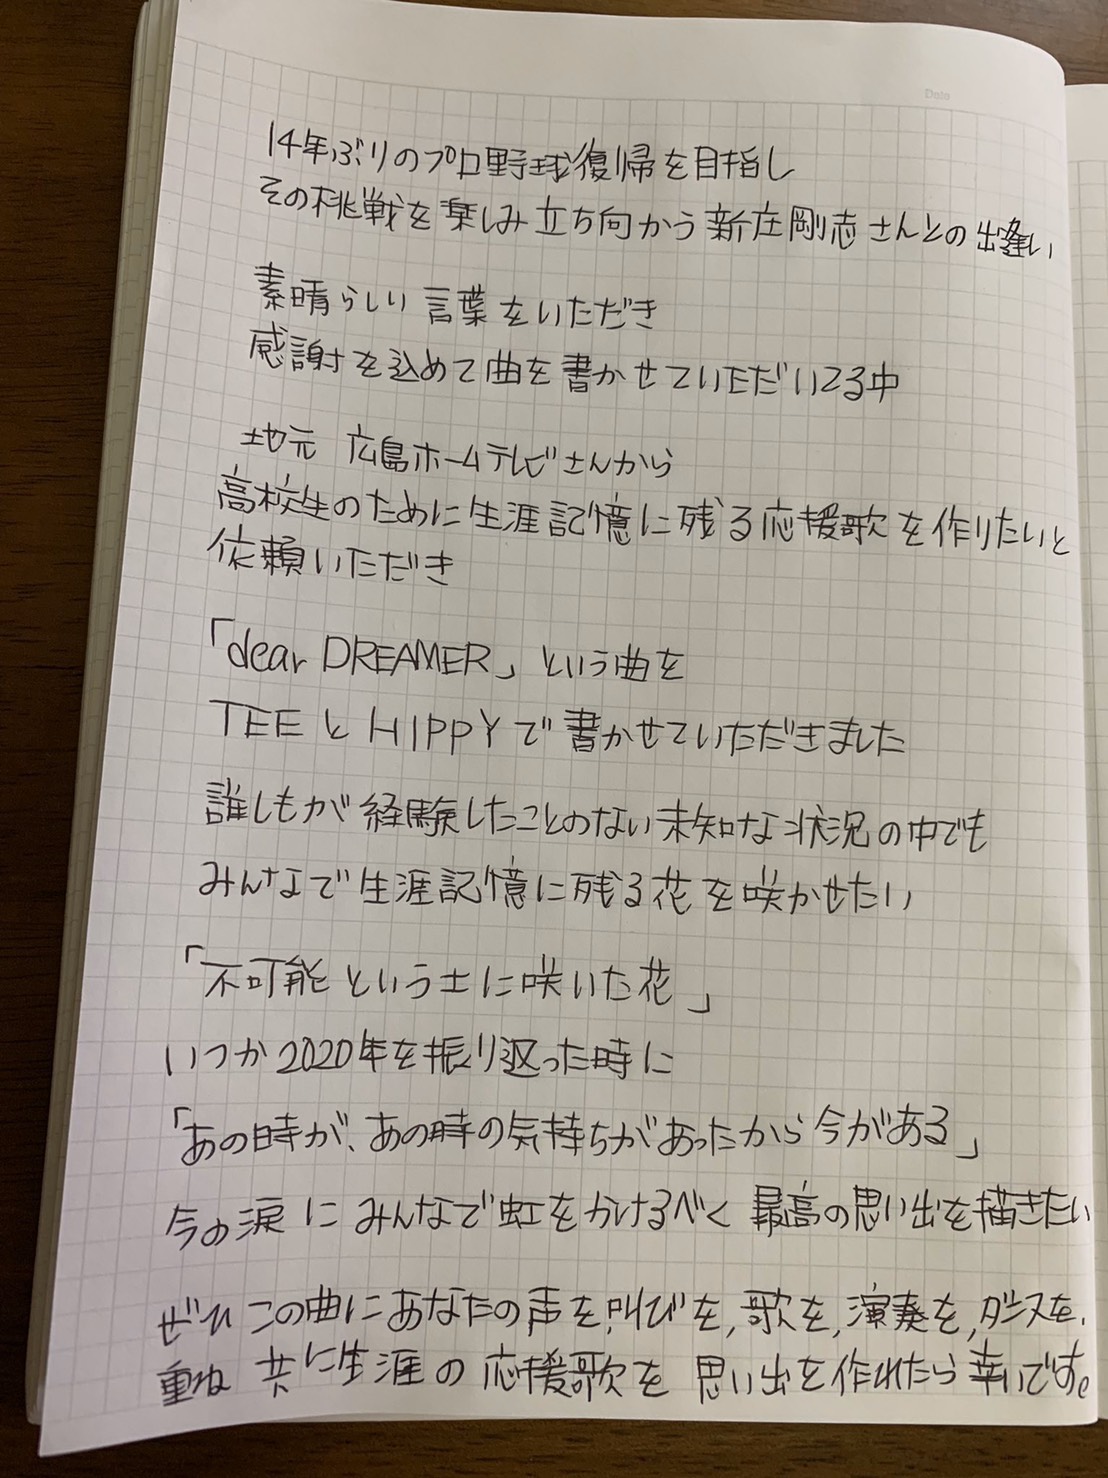 Date
14年ぶりのプロ野球復帰を目指し
その挑戦を楽しみ立ち向かう新庄剛志さんとの出逢い
素晴らしい言葉をいただき
感謝を込めて曲を書かせていただいてる中
地元 広島ホームテレビさんから
高校生のために生涯記憶に残る応援歌を作りたいと
依頼いただき
「dear DREAMER」という曲を
TEEとHIPPYで書かせていただきました
誰しもが経験したことのない未知な状況の中でも
みんなで生涯記憶に残る花を咲かせたい
「不可能という土に咲いた花」
いつか2020年を振り返った時に
「あの時が、あの時の気持ちがあったから今がある」
今の涙にみんなで虹をかけるべく 最高の思い出を描きたい
ぜひこの曲にあなたの声を,叫びを,歌を,演奏を,ダンスを,
重ね 共に生涯の応援歌を 思い出を作れたら幸いです。